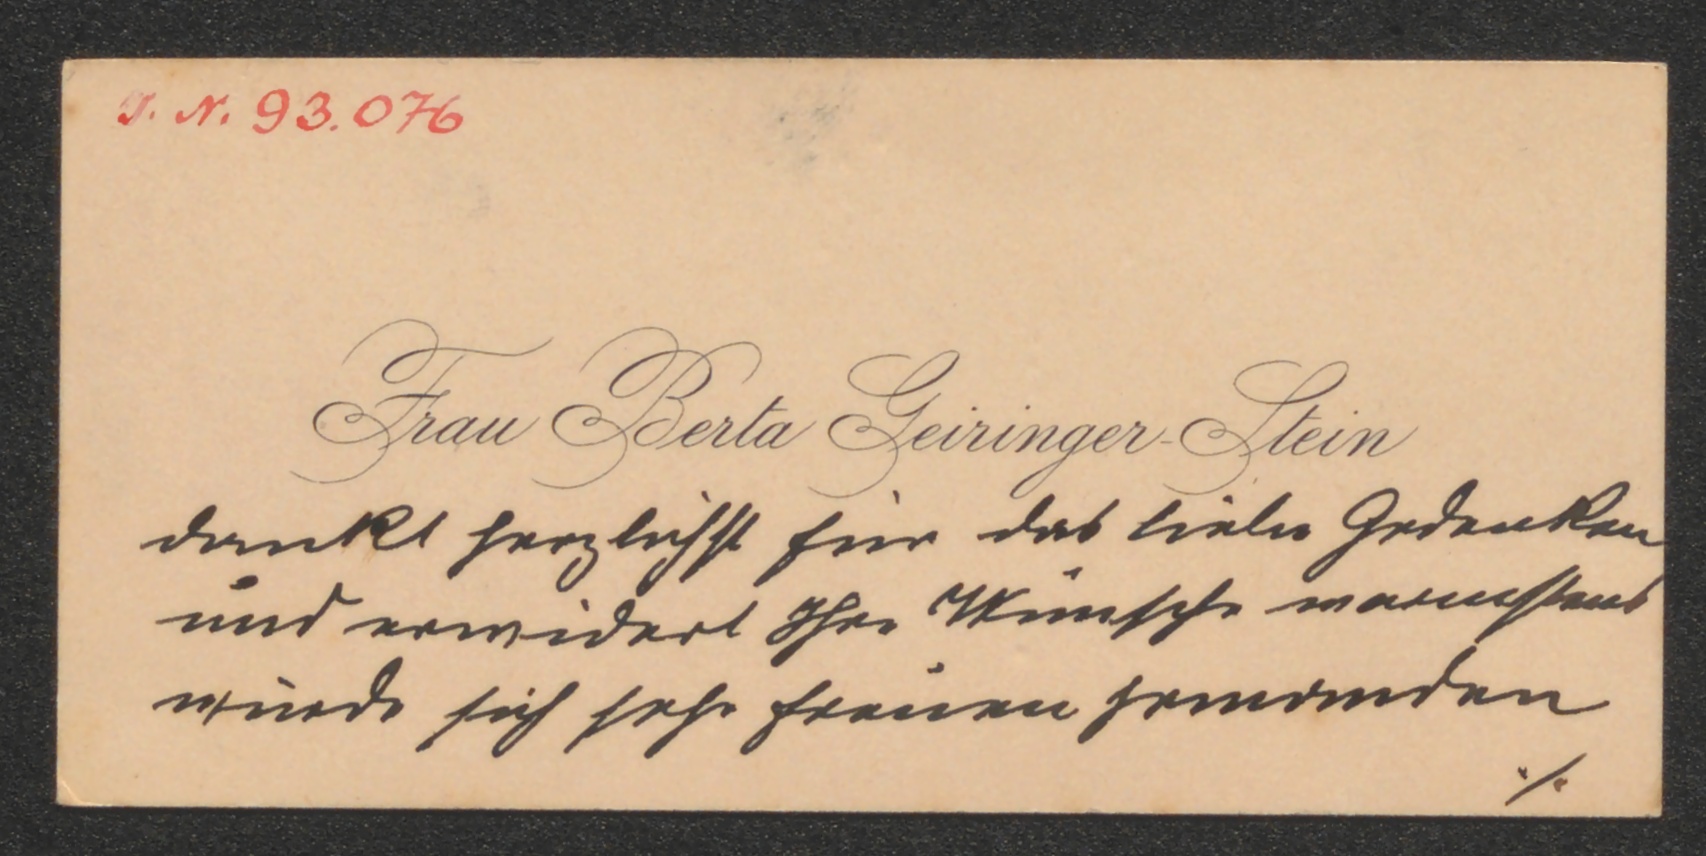 I. N. 93.076
Frau Berta Geiringer-Stein
dankt herzlichst für das liebe Gedenken
und erwidert Ihre Wünsche warmstens
würde sich sehr freuen
./.